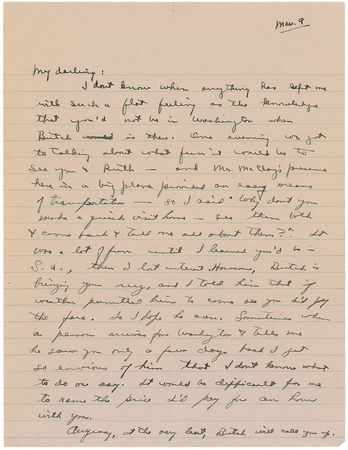 Mar. 9
My darling:
I don't know when anything has left me
with such a flat feeling as the knowledge
that you'd not be in Washington when
Butch is there. One evening we got
to talking about what fun it would be to
see you & Ruth — and Mr. McCloy's presence
here in a big plane provided an easy means
of transportation — so I said "Why don't you
make a quick visit home — see them both
& come back & tell me all about them?" It
was a lot of fun until I learned you'd be in
S.A., then I lost interest. However, Butch is
bringing you rug, and I told him that if
weather permitted him to come see you I'd pay
the fare. So I hope he can. Sometimes when
a person arrives from Washington & tells me
he saw you only a few days back I get
so envious of him that I don't know what
to do or say. It would be difficult for me
to name the price I'd pay for an hour
with you.
Anyway, at the very least, Butch will call you up.